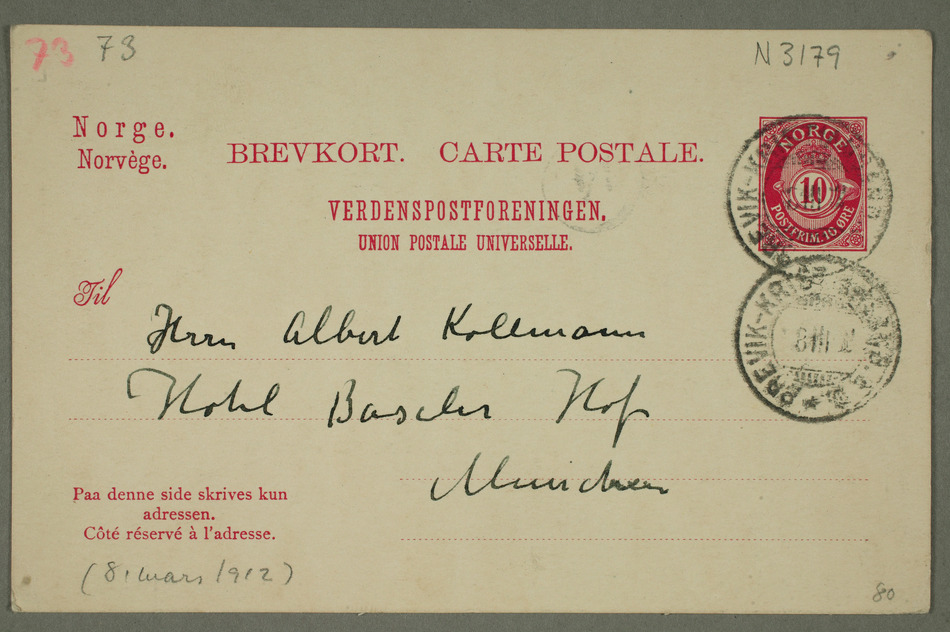 73 73
N 3179
Norge.
Norvège.
BREVKORT. CARTE POSTALE.
VERDENSPOSTFORENINGEN.
UNION POSTALE UNIVERSELLE.
NORGE
10
POSTFRIM. 10 ØRE
Til
Herrn Albert Kollmann
Hotel Baseler Hof
München
8 III
Paa denne side skrives kun
adressen.
Côté réservé à l'adresse.
(8. mars 1912)
80